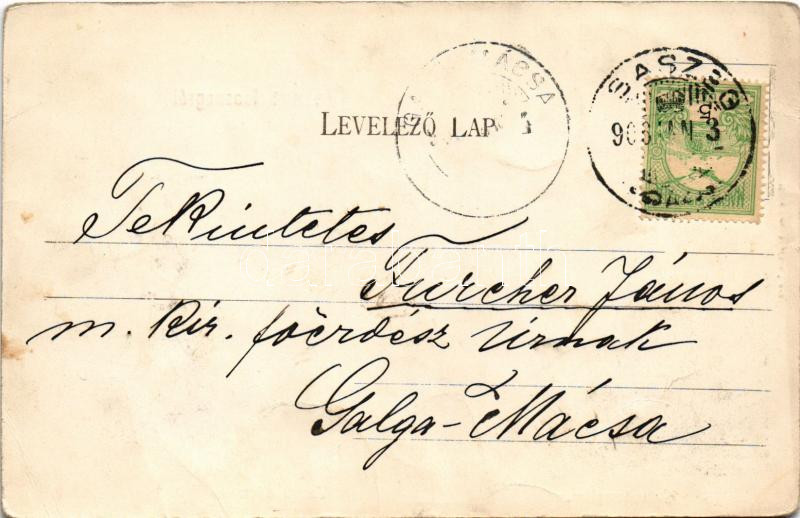 LEVELEZŐ LAP
MÁCSA
903 JAN 3
Tekintetes
Furcher János
m. kir. főerdész Úrnak
Galga-Mácsa